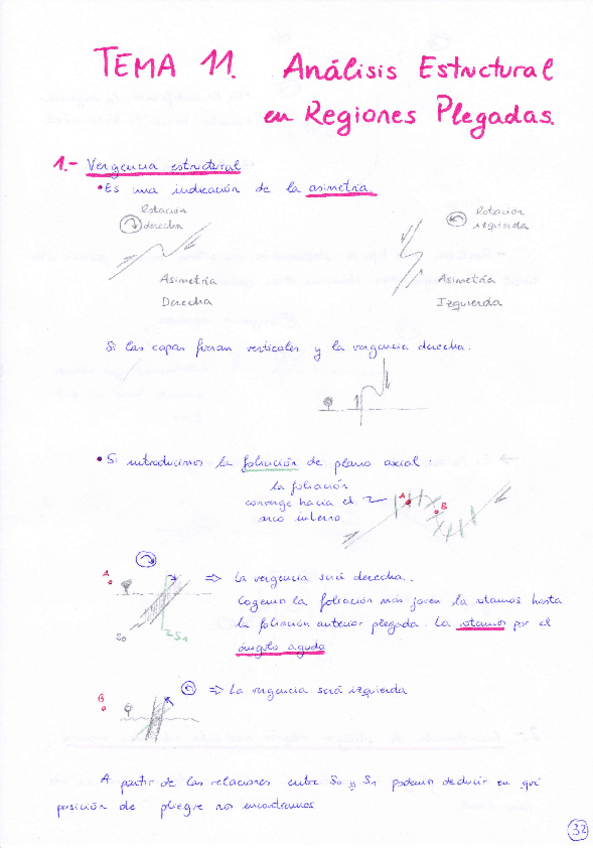 TEMA 11. Análisis Estructural
en Regiones Plegadas.
1.- Vergencia estructural
• Es una indicación de la asimetría.
Rotación derecha
Rotación izquierda
Asimetría Derecha
Asimetría Izquierda
Si las capas fueran verticales y la vergencia derecha.
• Si introducimos la foliación de plano axial:
la foliación
converge hacia el
arco interno
A
B
A
⇒ La vergencia será derecha.
Cogemos la foliación más joven la rotamos hasta
la foliación anterior plegada. La rotamos por el
ángulo agudo
S0
S1
B
⇒ La vergencia será izquierda
A partir de las relaciones entre S0 y S1 podemos deducir en qué
posición de pliegue nos encontramos
32